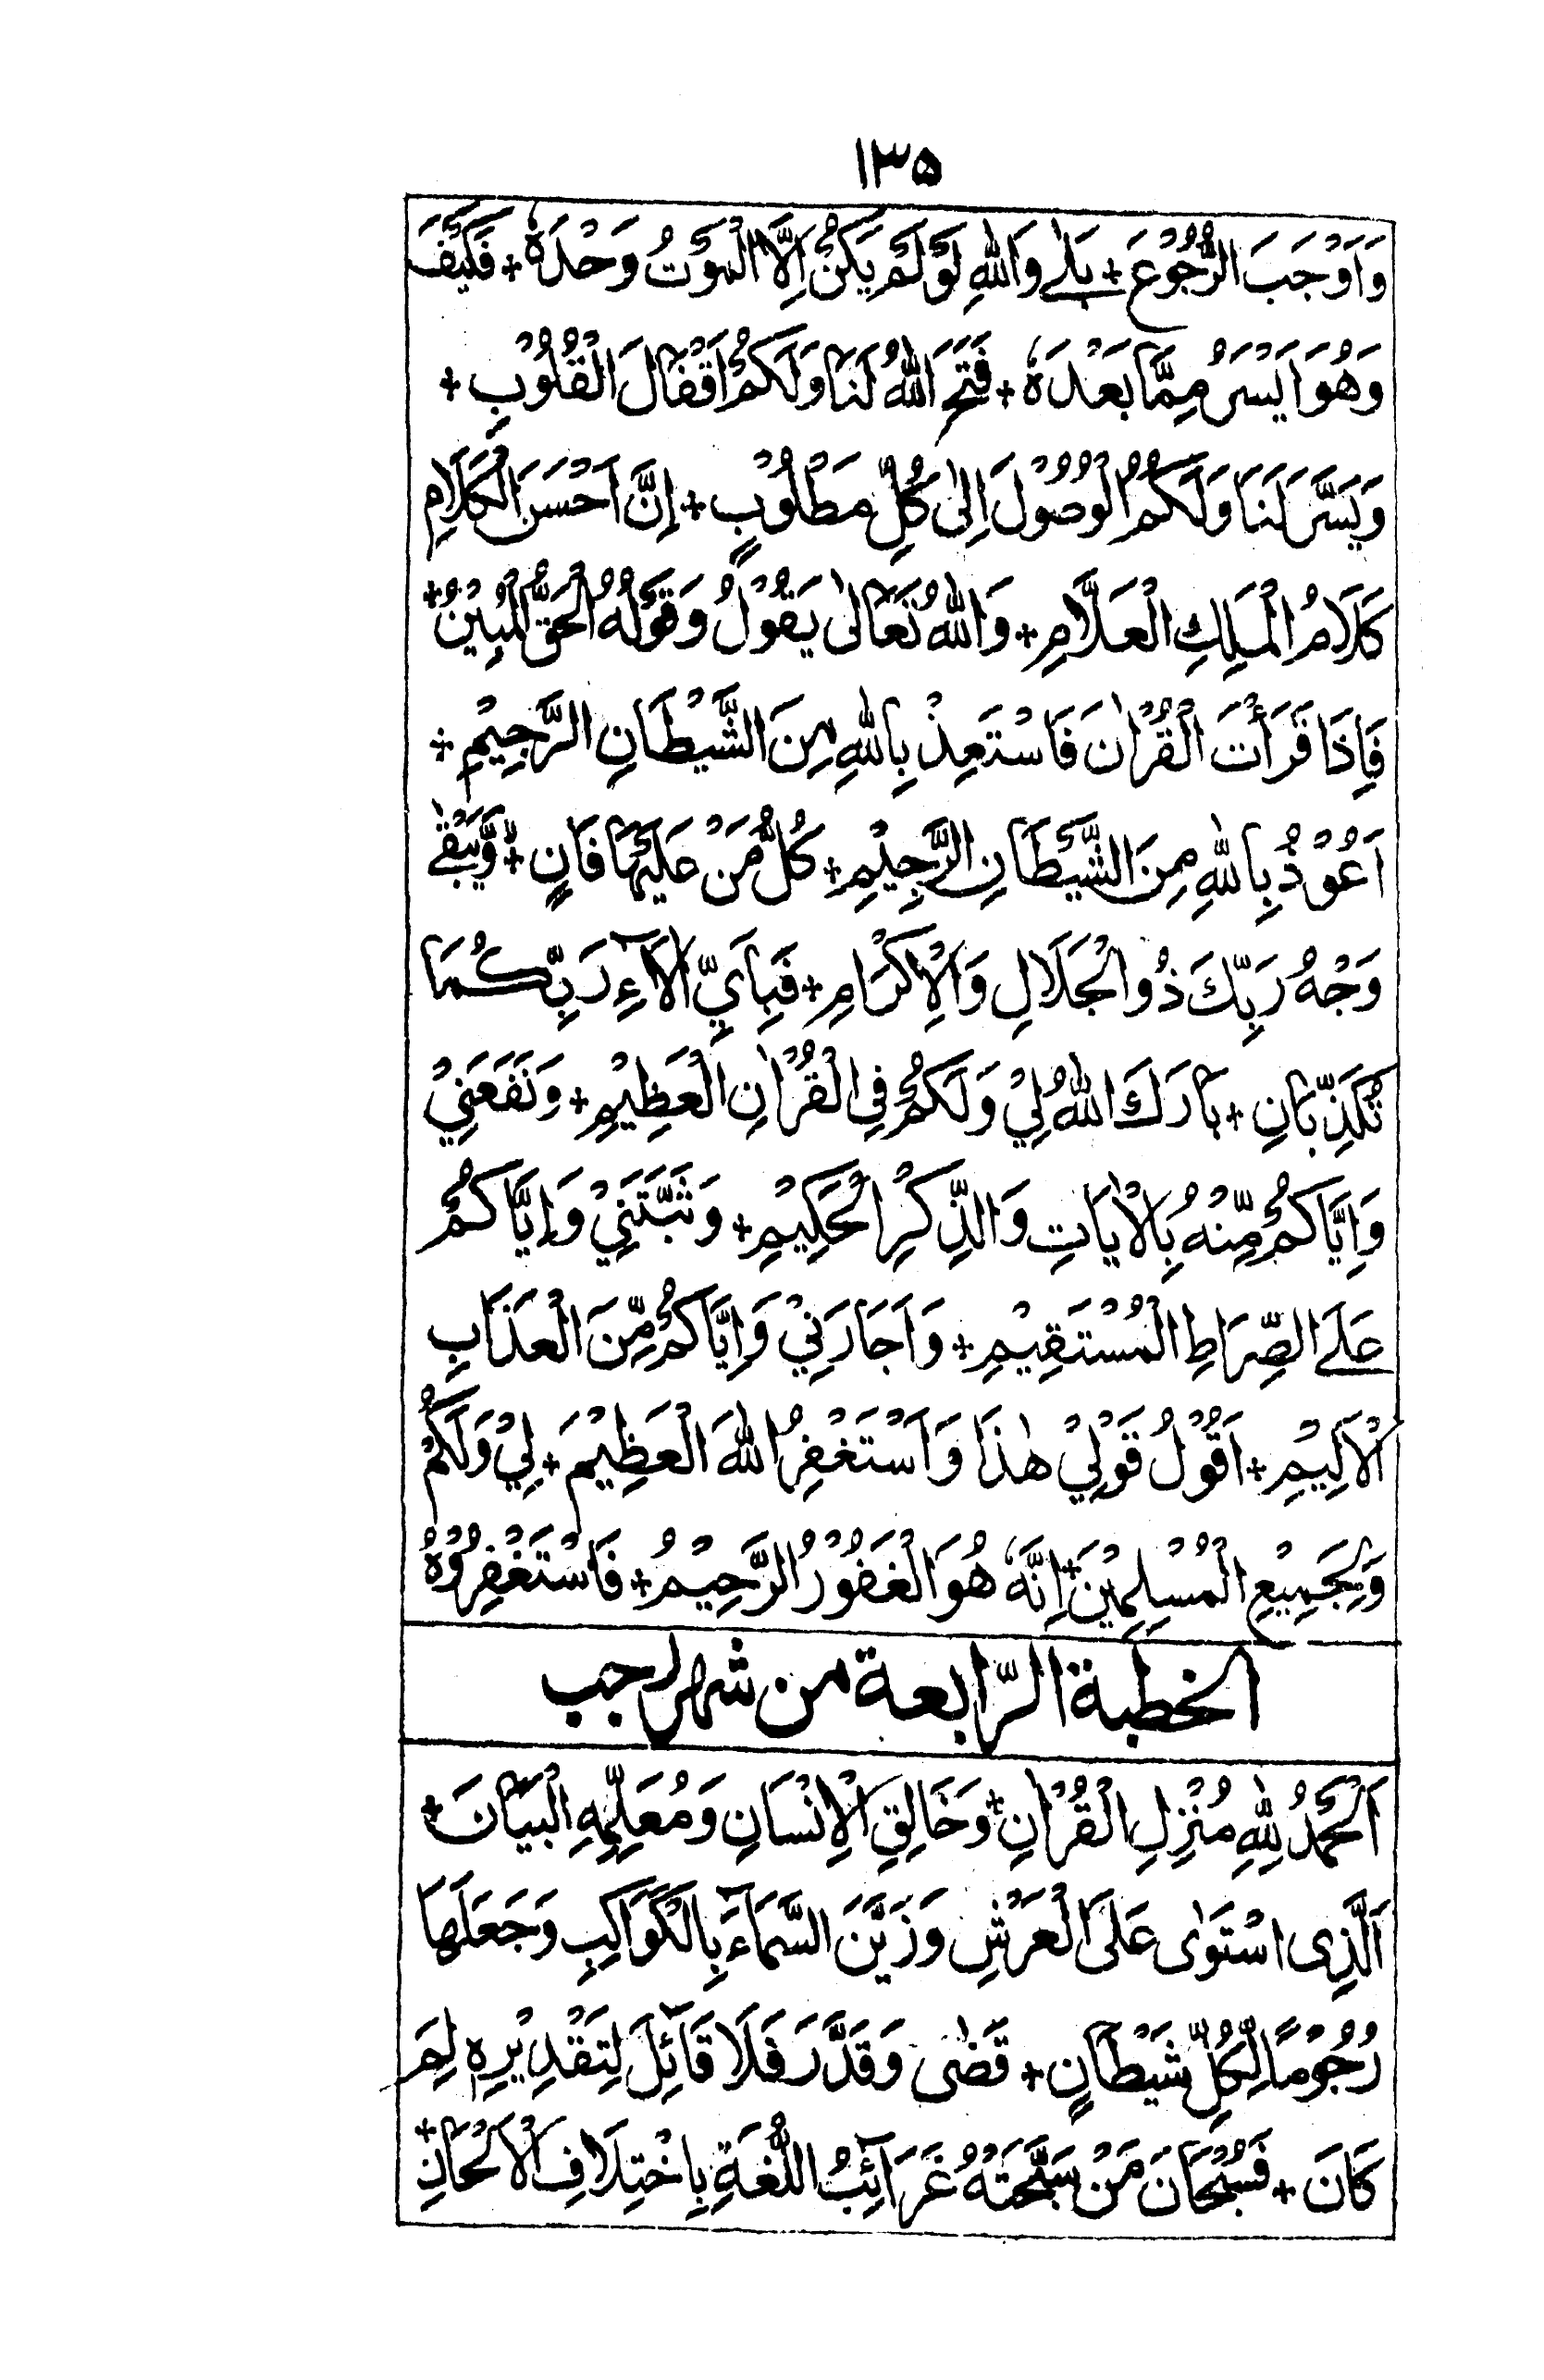 ١٣٥
وَاَوْجَبَ الرُّجُوْعَ + بَلٰے وَاللّٰهِ لَوْ لَمْ يَكُنْ اِلَّا الْمَوْتُ وَحْدَهٗ + فَكَيْفَ
وَهُوَ اَيْسَرُ مِمَّا بَعْدَهٗ + فَتَحَ اللّٰهُ لَنَا وَلَكُمْ اَقْفَالَ الْقُلُوْبِ +
وَيَسَّرَ لَنَا وَلَكُمُ الْوُصُوْلَ اِلٰى كُلِّ مَطْلُوْبٍ + إِنَّ اَحْسَنَ الْكَلَامِ
كَلَامُ الْمَلِكِ الْعَلَّامِ + وَاللّٰهُ تَعَالٰى يَقُوْلُ وَقَوْلُهُ الْحَقُّ الْمُبِيْنُ +
فَاِذَا قَرَأْتَ الْقُرْاٰنَ فَاسْتَعِذْ بِاللّٰهِ مِنَ الشَّيْطَانِ الرَّجِيْمِ +
اَعُوْذُ بِاللّٰهِ مِنَ الشَّيْطَانِ الرَّجِيْمِ + كُلُّ مَنْ عَلَيْهَا فَانٍ + وَّيَبْقٰے
وَجْهُ رَبِّكَ ذُو الْجَلَالِ وَالْاِكْرَامِ + فَبِاَيِّ اٰلَآءِ رَبِّكُمَا
تُكَذِّبَانِ + بَارَكَ اللّٰهُ لِيْ وَلَكُمْ فِي الْقُرْاٰنِ الْعَظِيْمِ + وَنَفَعَنِيْ
وَاِيَّاكُمْ مِّنْهُ بِالْاٰيَاتِ وَالذِّكْرِ الْحَكِيْمِ + وَثَبَّتَنِيْ وَاِيَّاكُمْ
عَلَے الصِّرَاطِ الْمُسْتَقِيْمِ + وَاَجَارَنِيْ وَاِيَّاكُمْ مِّنَ الْعَذَابِ
الْاَلِيْمِ + اَقُوْلُ قَوْلِيْ هٰذَا وَاَسْتَغْفِرُ اللّٰهَ الْعَظِيْمَ + لِيْ وَلَكُمْ
وَلِجَمِيْعِ الْمُسْلِمِيْنَ + اِنَّهٗ هُوَ الْغَفُوْرُ الرَّحِيْمُ + فَاسْتَغْفِرُوْهُ
الخطبة الرّابعة من شهر رجب
اَلْحَمْدُ لِلّٰهِ مُنْزِلِ الْقُرْاٰنِ + وَخَالِقِ الْاِنْسَانِ وَمُعَلِّمِهِ الْبَيَانَ +
اَلَّذِى اسْتَوٰى عَلَى الْعَرْشِ وَزَيَّنَ السَّمَآءَ بِالْكَوَاكِبِ وَجَعَلَهَا
رُجُوْمًا لِّكُلِّ شَيْطَانٍ + قَضٰى وَقَدَّرَ فَلَا قَآئِلَ لِتَقْدِيْرِهٖ لِمَ
كَانَ + فَسُبْحَانَ مَنْ سَبَّحَتْهُ غَرَآئِبُ اللُّغَةِ بِاخْتِلَافِ الْاَلْحَانِ +